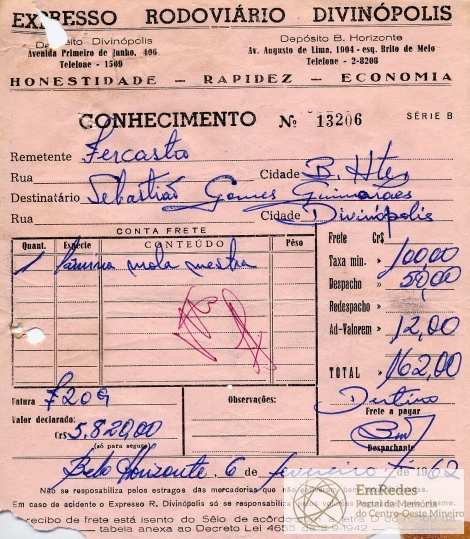 EXPRESSO RODOVIÁRIO DIVINÓPOLIS
Depósito Divinópolis
Avenida Primeiro de Junho, 406
Telefone - 1509
Depósito B. Horizonte
Av. Augusto de Lima, 1904 - esq. Brito de Melo
Telefone - 2-8208
HONESTIDADE - RAPIDEZ - ECONOMIA
CONHECIMENTO Nº 13206 SÉRIE B
Remetente Fercasto
Rua Cidade B. Hte
Destinatário Sebastião Gomes Guimarães
Rua Cidade Divinópolis
CONTA FRETE
Quant. Espécie CONTEÚDO Pêso
1 lâmina mola mestra
Frete Cr$
Taxa min. » 100,00
Despacho » 50,00
Redespacho »
Ad-Valorem » 12,00
TOTAL » 162,00
Destino
Frete a pagar
Despachante
Fatura 7209
Valor declarado:
Cr$ 5.820,00
(só para seguro)
Observações:
Belo Horizonte, 6 de fevereiro de 1962
Não se responsabiliza pelos estragos das mercadorias que não
Em caso de acidente o Expresso R. Divinópolis só se responsabiliza pelos
recibo de frete está isento do Sêlo de acôrdo com a letra D da
tabela anexa ao Decreto Lei 4655 de 3-9-1942
EmRedes
Portal da Memória
do Centro-Oeste Mineiro